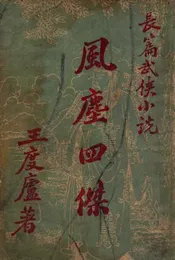 長篇武俠小説
風塵四傑
王度廬著